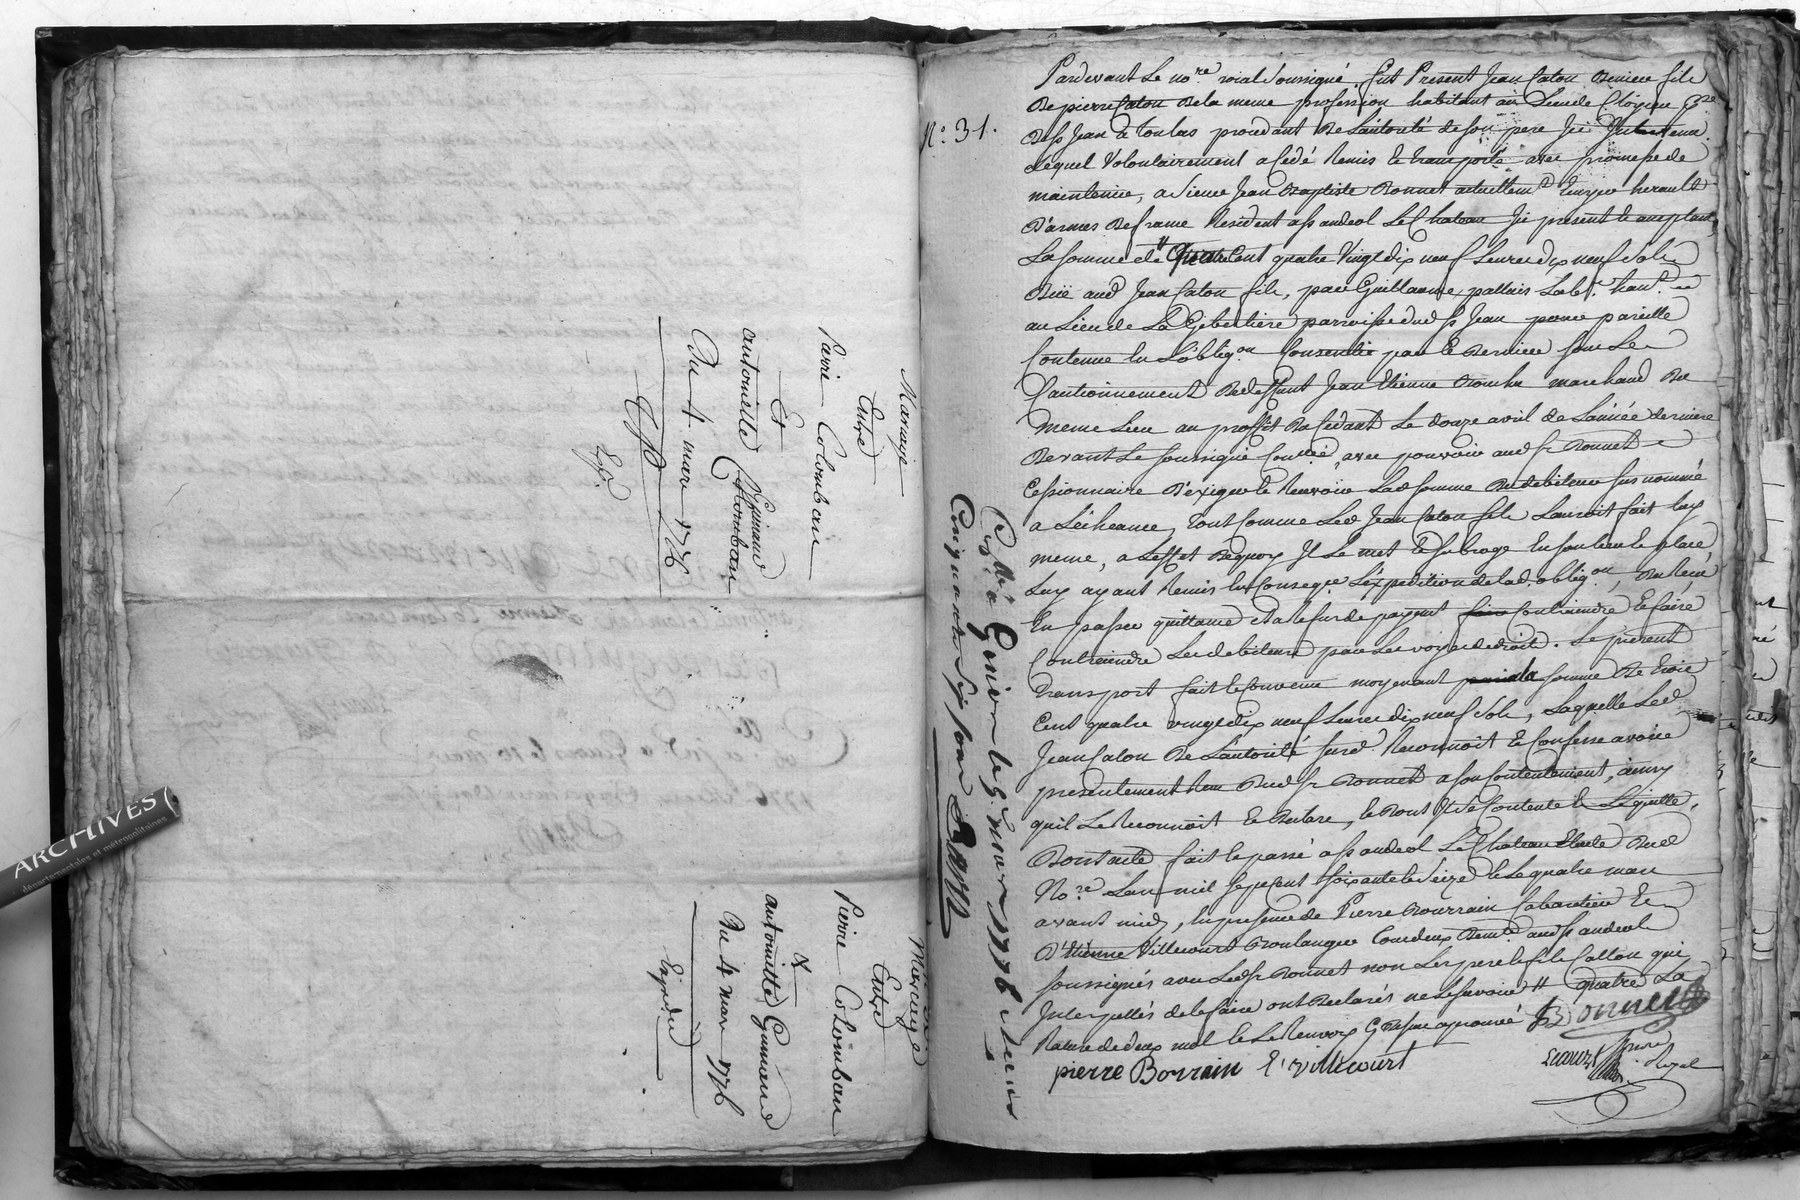 Mariage
Entre
Pierre Colombau
Et
antoinette Guimand
Colombau
Du 4 mars 1776
Expé.
Mariage
Entre
Pierre Colombau
&
antoinette Guimand
Du 4 mars 1776
Expédié
N.º 31.
Pardevant Le no.re roial soussigné, fut Present Jean Caton Berniere fils
De pierre Caton De la meme profession habitant au Lieu de
De St Jean de Toulas procedant De L'autorité de son pere Ici Intervenu
Lequel Volontairement a Cedé Remis & transporté avec promesse de
maintenir, a Sieur Jean Baptiste Bonnet actuellem.t herault
D'armes De france Resident a St andeol Le Chateau Ici present & acceptant
La somme de # Quatre Cent quatre Vingt dix neuf Livres dix neuf Sols
Düe aud Jean Caton fils, par Guillaume pallais Lab.r hant.
au Lieu de La Gibertiere parroisse dud St Jean pareille
Contenue En L'oblig.on Consentie par le Dernier sous Le
Cautionnement De deffunt Jean Etienne marchand Du
meme Lieu au proffit Du Cedant Le douze avril de L'année derniere
Devant Le soussigné avec pouvoir aud Sr Bonnet
Cessionnaire D'exiger & Recevoir Lad somme Du debiteur sus nommé
a L'écheance, tout Comme Led Jean Caton fils L'auroit fait luy
meme, a L'effet Dequoy Il Le met & subroge En son lieu & place
Luy ayant Remis En Conseq.ce L'expedition de lad. oblig.on, Du Recu
En passer quittance & a Refus de payement Contraindre & faire
Contraindre Les debiteurs par Les voyes de droit. Le present
Transport fait & Convenu moyenant la somme De trois
Cent quatre vingt dix neuf Livres dix neuf Sols, Laquelle Led
Jean Caton De L'autorité susd. Reconnoit & Confesse avoir
presentement Recu Dud Sr Bonnet a son Contentement, ainsy
qu'il Le Reconnoit & Declare, & Dont Il Se Contente & Le quitte.
Dont acte fait & passé a St andeol Le Chateau Etude Dud
No.re L'an mil Sept Cent Soixante & Seize & Le quatre mars
avant midy, En presence de Pierre Bourrain Cabaretier &
D'Etienne Villecourt Boulanger tous deux Demt. aud St andeol
soussignés avec Led Sr Bonnet non Les pere & fils Catton qui
Interpellés de le faire ont Declarés ne le Savoir # quatre La
Rature de deux mots & Le Renvoy Cy dessus approuvé Bonnet
pierre Borrain E. Villecourt
No.re Royal
C.lle a Givors le 9. mars 1776 Reçu
Cinquante Six sous